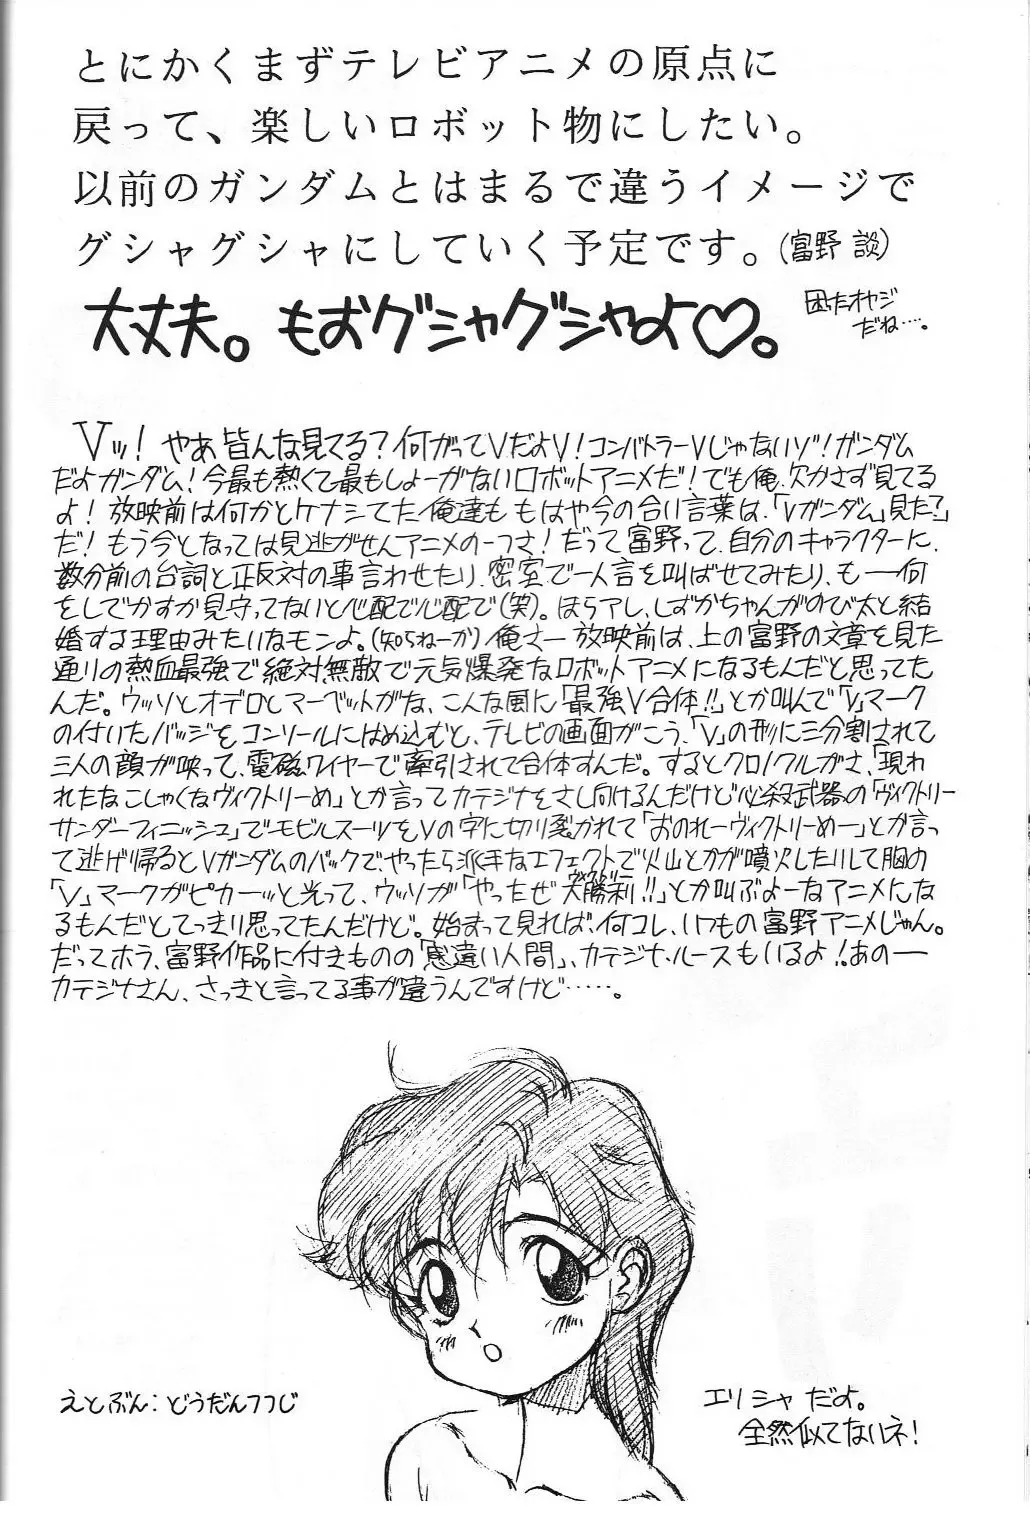 とにかくまずテレビアニメの原点に
戻って、楽しいロボット物にしたい。
以前のガンダムとはまるで違うイメージで
グシャグシャにしていく予定です。(富野 談)
大丈夫。もおグシャグシャよ♡。
困ったオヤジ
だね…。
Vッ! やあ皆んな見てる?何がってVだよV!コンバトラーVじゃないゾ!ガンダム
だよガンダム!今最も熱くて最もしょーがないロボットアニメだ!でも俺、欠かさず見てる
よ! 放映前は何かとケナシてた俺達も もはや今の合い言葉は、「Vガンダム」見た?」
だ!もう今となっては見逃がせんアニメの一つさ!だって富野って、自分のキャラクターに、
数分前の台詞と正反対の事言わせたり、密室で一人言を叫ばせてみたり、も――何
をしでかすか見守ってないと心配で心配で(笑)。ほらアレ、しずかちゃんがのび太と結
婚する理由みたいなモンよ。(知らねーか)俺さー 放映前は、上の富野の文章を見た
通りの熱血最強で絶対無敵で元気爆発なロボットアニメになるもんだと思ってた
んだ。ウッソとオデロとマーベットがな、こんな風に「最強V合体!!」とか叫んで「V」マーク
の付いたバッジをコンソールにはめ込むと、テレビの画面がこう、「V」の形に三分割されて
三人の顔が映って、電磁ワイヤーで牽引されて合体すんだ。するとクロノクルがさ、「現わ
れたなこしゃくなヴィクトリーめ」とか言ってカテジナをさし向けるんだけど必殺武器の「ヴィクトリー
サンダーフィニッシュ」でモビルスーツをVの字に切り裂かれて「おのれーヴィクトリーめー」とか言っ
て逃げ帰るとVガンダムのバックで、やったら派手なエフェクトで火山とかが噴火したりして胸の
「V」マークがピカーッと光って、ウッソが「やったぜ 大勝利!!」とか叫ぶよーなアニメにな
るもんだとてっきり思ってたんだけど。始まって見れば、何コレ、いつもの富野アニメじゃん。
だってホラ、富野作品に付きものの「感違い人間」、カテジナ・ルースもいるよ!あの――
カテジナさん、さっきと言ってる事が違うんですけど……。
えとぶん:どうだんつつじ
エリシャ だよ。
全然似てないネ!